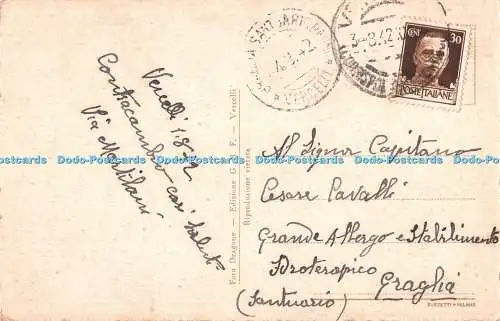 Vercelli 1.8.42
Contraccambio cari saluti
Foto Dragone - Edizione G. F. - Vercelli
Riproduzione vietata
3-8.42
CENT 30
POSTE ITALIANE
Al Signor Capitano
Cesare Cavalli
Grande Albergo e Stabilimento
Idroterapico
Graglia
(Santuario)
BUZZETTI - MILANO
Dodo-Postcards Dodo-Postcards Dodo-Postcards Dodo-Postcards Dodo-Postcards